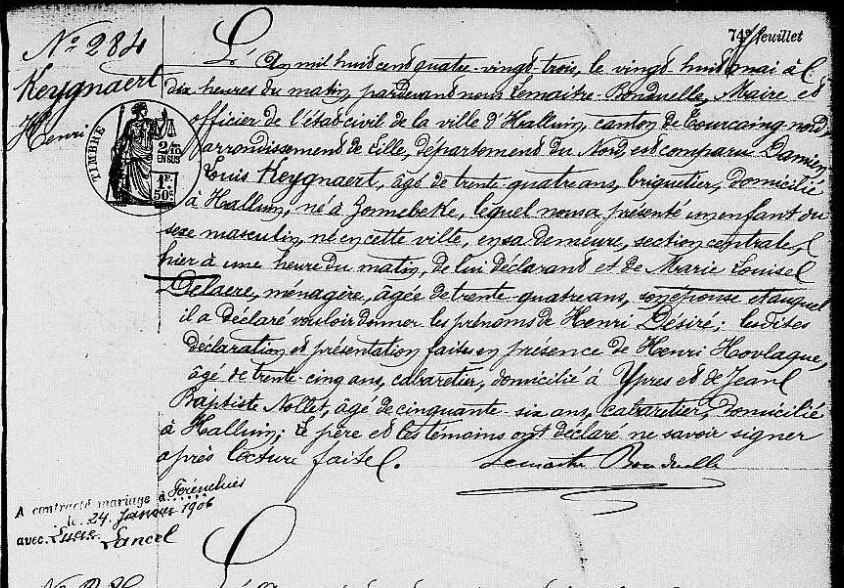 74e feuillet
No 284
Keygnaert
Henri
TIMBRE
2/10
EN SUS
1F.
50c
L'An mil huit cent quatre-vingt-trois, le vingt huit mai à
dix heures du matin, pardevant nous Lemaitre-Bonduelle, Maire et
officier de l'état civil de la ville d'Halluin, canton de Tourcoing-nord,
arrondissement de Lille, département du Nord, est comparu Damien
Louis Keygnaert, âgé de trente-quatre ans, briquetier, domicilié
à Halluin, né à Zonnebeke, lequel nous a présenté un enfant du
sexe masculin, né en cette ville, en sa demeure, section centrale,
hier à une heure du matin, de lui déclarant et de Marie Louise
Delaere, ménagère, âgée de trente-quatre ans, son épouse et auquel
il a déclaré vouloir donner les prénoms de Henri Désiré; lesdites
déclaration et présentation faites en présence de Henri Hovlaque,
âgé de trente-cinq ans, cabaretier, domicilié à Ypres et de Jean
Baptiste Nollet, âgé de cinquante-six ans, cabaretier, domicilié
à Halluin; le père et les témoins ont déclaré ne savoir signer
après lecture faite.
Lemaitre Bonduelle
A contracté mariage à Pérenchies
le 24 Janvier 1906
avec Lucie
Lancel
L'